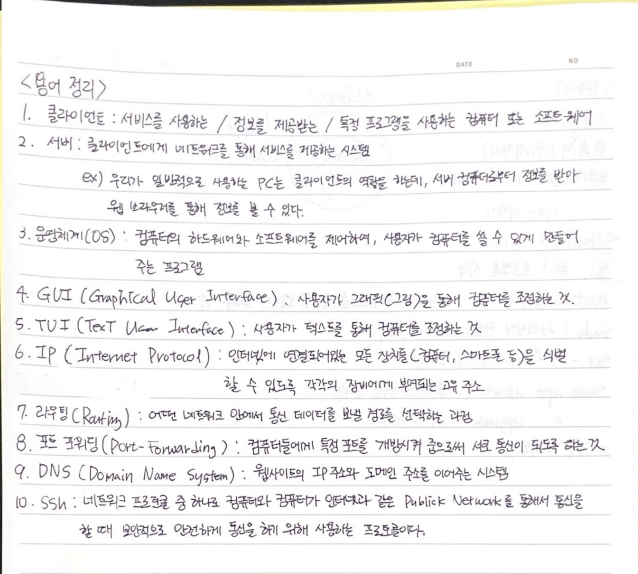 DATE NO
<용어 정리>
1. 클라이언트 : 서비스를 사용하는 / 정보를 제공받는 / 특정 프로그램을 사용하는 컴퓨터 또는 소프트웨어
2. 서버 : 클라이언트에게 네트워크를 통해 서비스를 제공하는 시스템
ex) 우리가 일반적으로 사용하는 PC는 클라이언트의 역할을 하는데, 서버 컴퓨터로부터 정보를 받아
웹 브라우저를 통해 정보를 볼 수 있다.
3. 운영체계(OS) : 컴퓨터의 하드웨어와 소프트웨어를 제어하여, 사용자가 컴퓨터를 쓸 수 있게 만들어
주는 프로그램
4. GUI (Graphical User Interface) : 사용자가 그래픽(그림)을 통해 컴퓨터를 조정하는 것.
5. TUI (TexT User Interface) : 사용자가 텍스트를 통해 컴퓨터를 조정하는 것
6. IP (Internet Protocol) : 인터넷에 연결되어있는 모든 장치들(컴퓨터, 스마트폰 등)을 식별
할 수 있도록 각각의 장비에게 부여되는 고유 주소
7. 라우팅 (Routing) : 어떤 네트워크 안에서 통신 데이터를 보낼 경로를 선택하는 과정
8. 포트 포워딩 (Port-Forwarding) : 컴퓨터들에게 특정 포트를 개방시켜 줌으로써 서로 통신이 되도록 하는 것
9. DNS (Domain Name System) : 웹사이트의 IP 주소와 도메인 주소를 이어주는 시스템
10. SSh : 네트워크 프로토콜 중 하나로 컴퓨터와 컴퓨터가 인터넷과 같은 Publick Network를 통해서 통신을
할 때 보안적으로 안전하게 통신을 하기 위해 사용하는 프로토콜이다.